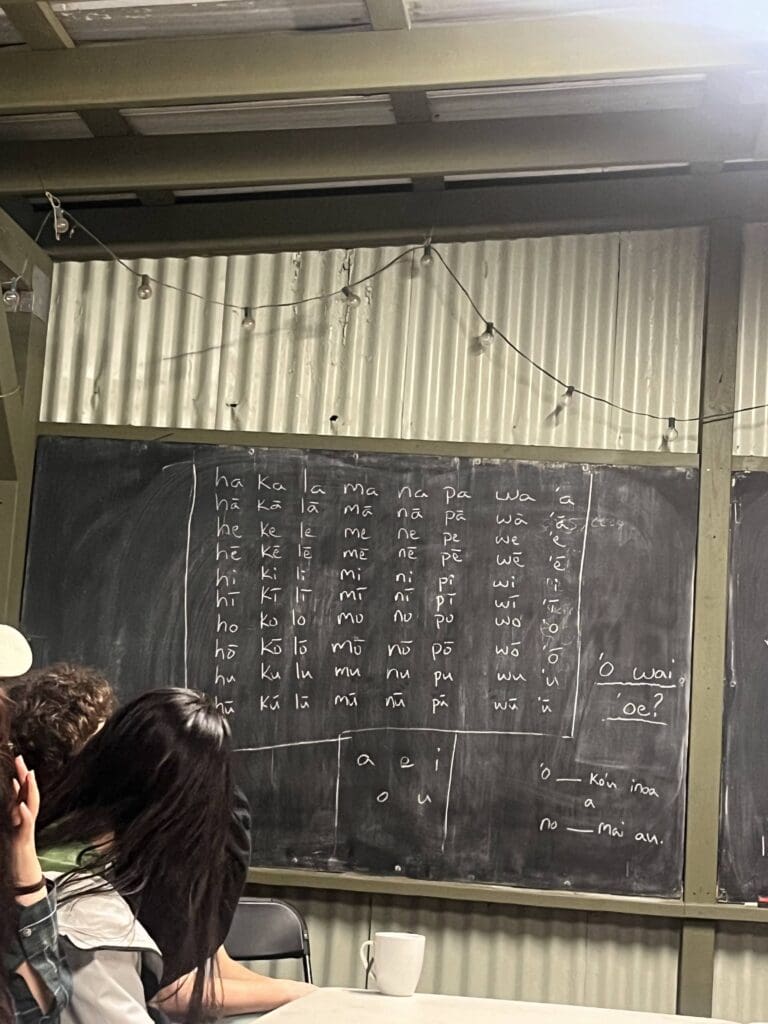 ha ka la ma na pa wa ʻa
hā kā lā mā nā pā wā ʻā
he ke le me ne pe we ʻe
hē kē lē mē nē pē wē ʻē
hi ki li mi ni pi wi ʻi
hī kī lī mī nī pī wī ʻī
ho ko lo mo no po wo ʻo
hō kō lō mō nō pō wō ʻō
hu ku lu mu nu pu wu ʻu
hū kū lū mū nū pū wū ʻū
a e i
o u
ʻO wai
ʻoe?
ʻO — Koʻu inoa
a
no — mai au.